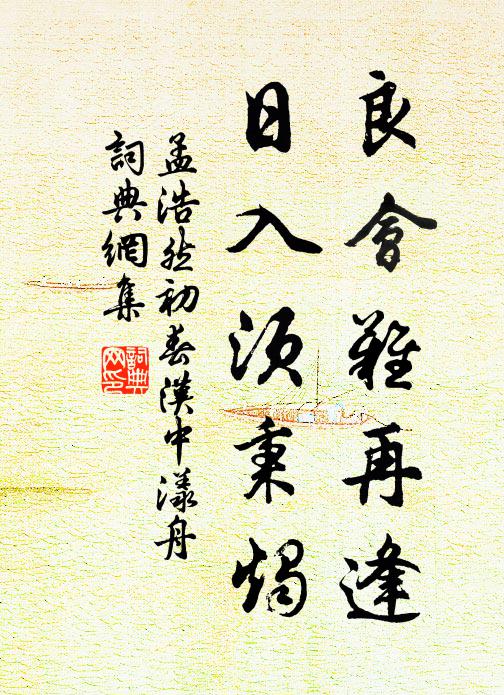 良會難再逢
日入須秉燭
孟浩然初春漢中漾舟
詞典網集
詞典網印